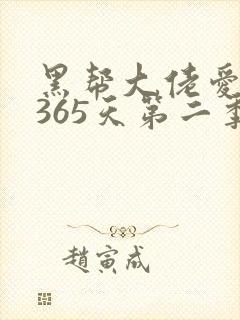 黑帮大佬爱
365天第二季
趙寅成